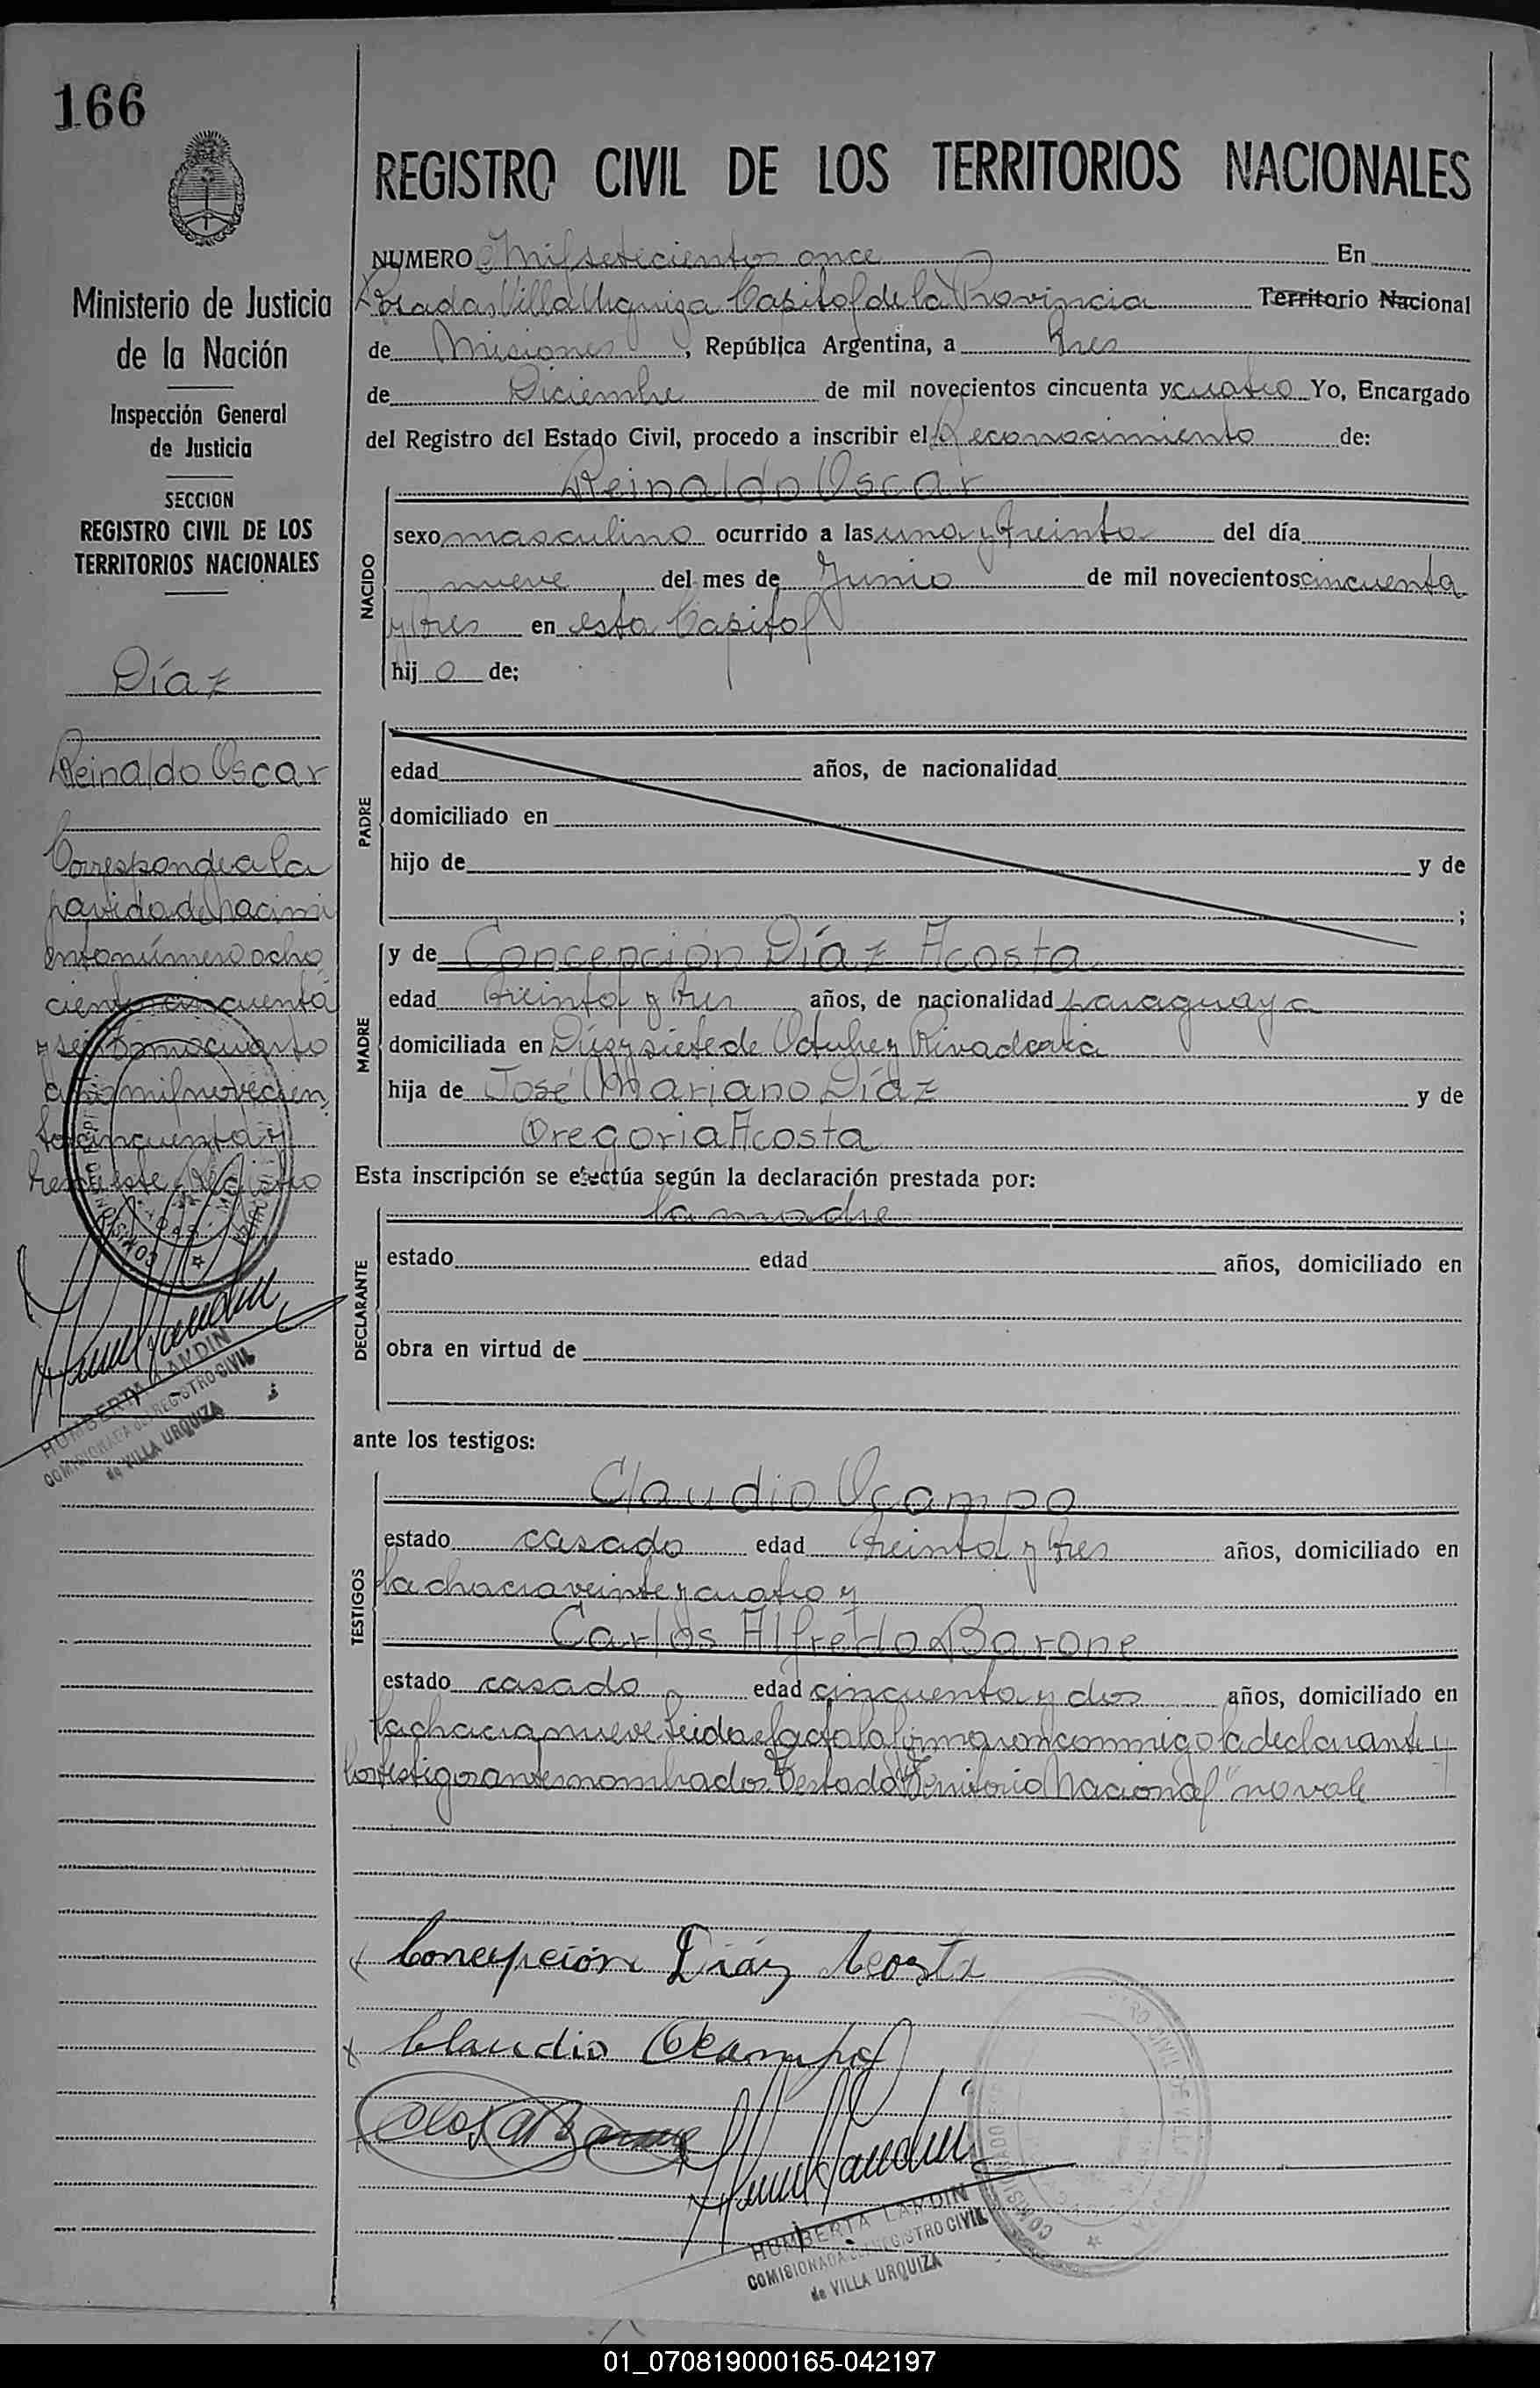 166
REGISTRO CIVIL DE LOS TERRITORIOS NACIONALES
Ministerio de Justicia
de la Nación
Inspección General
de Justicia
SECCION
REGISTRO CIVIL DE LOS
TERRITORIOS NACIONALES
Díaz
Reinaldo Oscar
Corresponde a la
partida de nacimi
ento número ocho
ciento cincuenta
y seis tomo cuarto
año mil novecien
tos cincuenta y
tres de este Registro
HUMBERTA LANDIN
COMISIONADA DEL REGISTRO CIVIL
de VILLA URQUIZA
NUMERO Mil setecientos once En
Posadas Villa Urquiza Capital de la Provincia Territorio Nacional
de Misiones, República Argentina, a tres
de Diciembre de mil novecientos cincuenta y cuatro Yo, Encargado
del Registro del Estado Civil, procedo a inscribir el Reconocimiento de:
NACIDO
Reinaldo Oscar
sexo masculino ocurrido a las una y treinta del día
nueve del mes de Junio de mil novecientos cincuenta
y tres en esta Capital
hij o de;
PADRE
edad años, de nacionalidad
domiciliado en
hijo de y de
;
MADRE
y de Concepción Díaz Acosta
edad treinta y tres años, de nacionalidad paraguaya
domiciliada en Diez y siete de Octubre y Rivadavia
hija de José Mariano Díaz y de
Gregoria Acosta
Esta inscripción se efectúa según la declaración prestada por:
DECLARANTE
la madre
estado edad años, domiciliado en
obra en virtud de
ante los testigos:
TESTIGOS
Claudio Ocampo
estado casado edad treinta y tres años, domiciliado en
la chacra veinte y cuatro y
Carlos Alfredo Barone
estado casado edad cincuenta y dos años, domiciliado en
la chacra nueve leida el acta la firmaron conmigo la declarante y
los testigos antes nombrados. Testado "Territorio Nacional" no vale
Concepción Díaz Acosta
Claudio Ocampo
HUMBERTA LANDIN
COMISIONADA DEL REGISTRO CIVIL
de VILLA URQUIZA
01_070819000165-042197